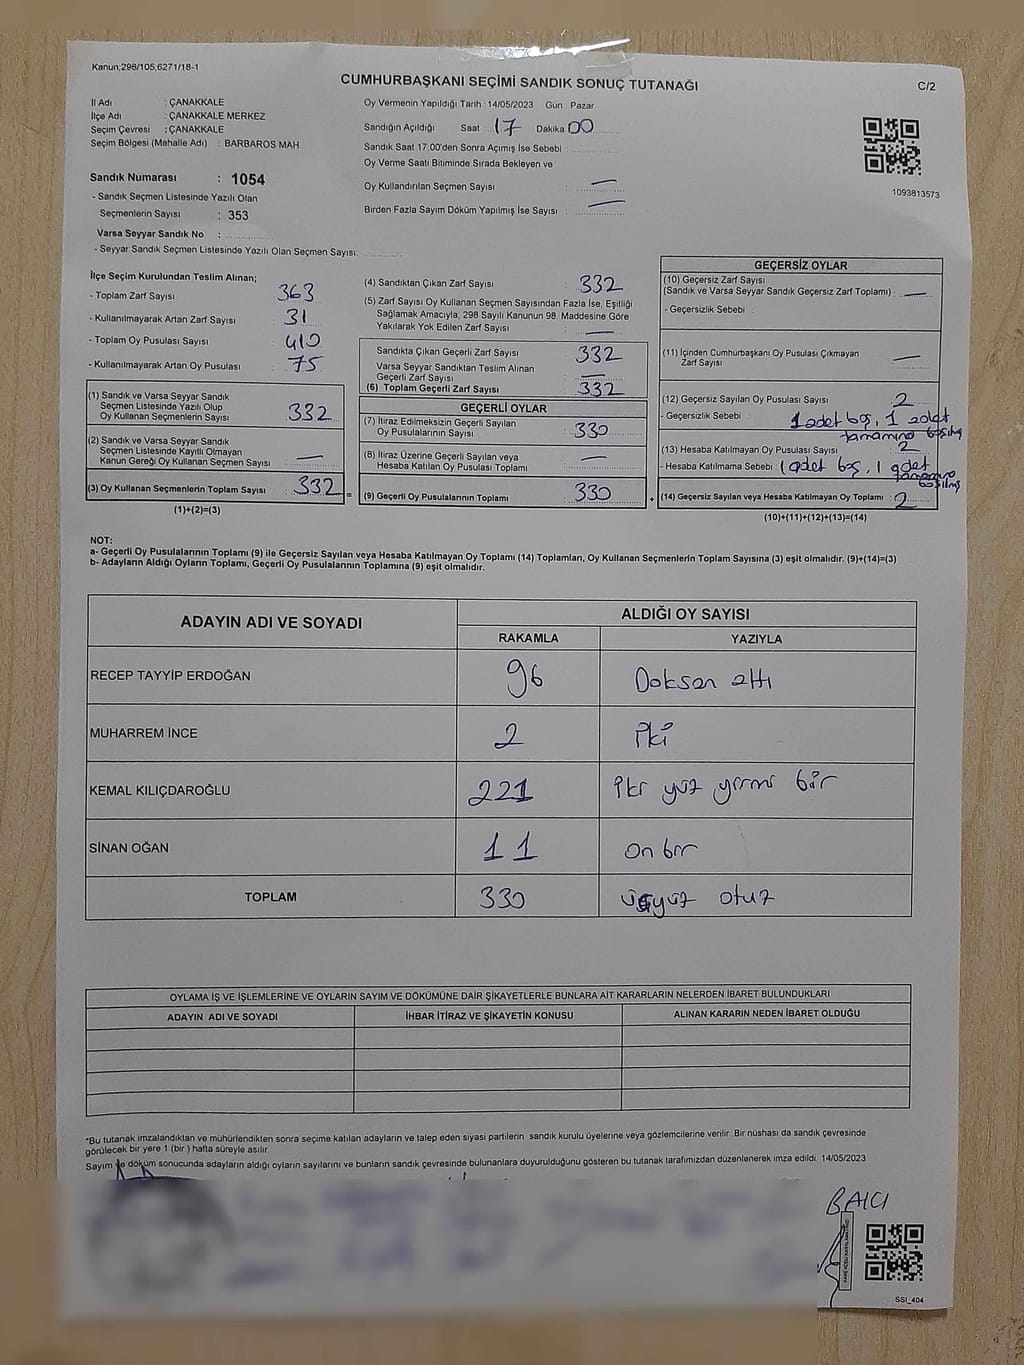 Kanun;298/105,6271/18-1
CUMHURBAŞKANI SEÇİMİ SANDIK SONUÇ TUTANAĞI
C/2
İl Adı : ÇANAKKALE
İlçe Adı : ÇANAKKALE MERKEZ
Seçim Çevresi : ÇANAKKALE
Seçim Bölgesi (Mahalle Adı) : BARBAROS MAH.
Oy Vermenin Yapıldığı Tarih : 14/05/2023 Gün : Pazar
Sandığın Açıldığı Saat : 17 Dakika 00
Sandık Saat 17:00'den Sonra Açımış İse Sebebi :
Oy Verme Saati Bitiminde Sırada Bekleyen ve
Oy Kullandırılan Seçmen Sayısı : —
Birden Fazla Sayım Döküm Yapılmış İse Sayısı : —
1093813573
Sandık Numarası : 1054
- Sandık Seçmen Listesinde Yazılı Olan
Seçmenlerin Sayısı : 353
Varsa Seyyar Sandık No :
- Seyyar Sandık Seçmen Listesinde Yazılı Olan Seçmen Sayısı:
İlçe Seçim Kurulundan Teslim Alınan;
- Toplam Zarf Sayısı : 363
- Kullanılmayarak Artan Zarf Sayısı : 31
- Toplam Oy Pusulası Sayısı : 410
- Kullanılmayarak Artan Oy Pusulası : 75
(1) Sandık ve Varsa Seyyar Sandık
Seçmen Listesinde Yazılı Olup
Oy Kullanan Seçmenlerin Sayısı : 332
(2) Sandık ve Varsa Seyyar Sandık
Seçmen Listesinde Kayıtlı Olmayan
Kanun Gereği Oy Kullanan Seçmen Sayısı : —
(3) Oy Kullanan Seçmenlerin Toplam Sayısı : 332 =
(1)+(2)=(3)
(4) Sandıktan Çıkan Zarf Sayısı : 332
(5) Zarf Sayısı Oy Kullanan Seçmen Sayısından Fazla İse, Eşitliği
Sağlamak Amacıyla, 298 Sayılı Kanunun 98. Maddesine Göre
Yakılarak Yok Edilen Zarf Sayısı : —
Sandıkta Çıkan Geçerli Zarf Sayısı : 332
Varsa Seyyar Sandıktan Teslim Alınan
Geçerli Zarf Sayısı : —
(6) Toplam Geçerli Zarf Sayısı : 332
GEÇERLİ OYLAR
(7) İtiraz Edilmeksizin Geçerli Sayılan
Oy Pusulalarının Sayısı : 330
(8) İtiraz Üzerine Geçerli Sayılan veya
Hesaba Katılan Oy Pusulası Toplamı : —
(9) Geçerli Oy Pusulalarının Toplamı : 330 +
GEÇERSİZ OYLAR
(10) Geçersiz Zarf Sayısı
(Sandık ve Varsa Seyyar Sandık Geçersiz Zarf Toplamı) : —
- Geçersizlik Sebebi :
(11) İçinden Cumhurbaşkanı Oy Pusulası Çıkmayan
Zarf Sayısı : —
(12) Geçersiz Sayılan Oy Pusulası Sayısı : 2
- Geçersizlik Sebebi : 1 adet boş, 1 adet
tamamına basılmış
(13) Hesaba Katılmayan Oy Pusulası Sayısı : 2
- Hesaba Katılmama Sebebi : 1 adet boş, 1 adet
tamamına basılmış
(14) Geçersiz Sayılan veya Hesaba Katılmayan Oy Toplamı : 2
(10)+(11)+(12)+(13)=(14)
NOT:
a- Geçerli Oy Pusulalarının Toplamı (9) ile Geçersiz Sayılan veya Hesaba Katılmayan Oy Toplamı (14) Toplamları, Oy Kullanan Seçmenlerin Toplam Sayısına (3) eşit olmalıdır. (9)+(14)=(3)
b- Adayların Aldığı Oyların Toplamı, Geçerli Oy Pusulalarının Toplamına (9) eşit olmalıdır.
ADAYIN ADI VE SOYADI
ALDIĞI OY SAYISI
RAKAMLA YAZIYLA
RECEP TAYYİP ERDOĞAN 96 Doksan altı
MUHARREM İNCE 2 iki
KEMAL KILIÇDAROĞLU 221 iki yüz yirmi bir
SİNAN OĞAN 11 on bir
TOPLAM 330 üçyüz otuz
OYLAMA İŞ VE İŞLEMLERİNE VE OYLARIN SAYIM VE DÖKÜMÜNE DAİR ŞİKAYETLERLE BUNLARA AİT KARARLARIN NELERDEN İBARET BULUNDUKLARI
ADAYIN ADI VE SOYADI İHBAR İTİRAZ VE ŞİKAYETİN KONUSU ALINAN KARARIN NEDEN İBARET OLDUĞU
*Bu tutanak imzalandıktan ve mühürlendikten sonra seçime katılan adayların ve talep eden siyasi partilerin sandık kurulu üyelerine veya gözlemcilerine verilir. Bir nüshası da sandık çevresinde
görülecek bir yere 1 (bir) hafta süreyle asılır.
Sayım ve döküm sonucunda adayların aldığı oyların sayılarını ve bunların sandık çevresinde bulunanlara duyurulduğunu gösteren bu tutanak tarafımızdan düzenlenerek imza edildi. 14/05/2023
BALCI
SSI_404